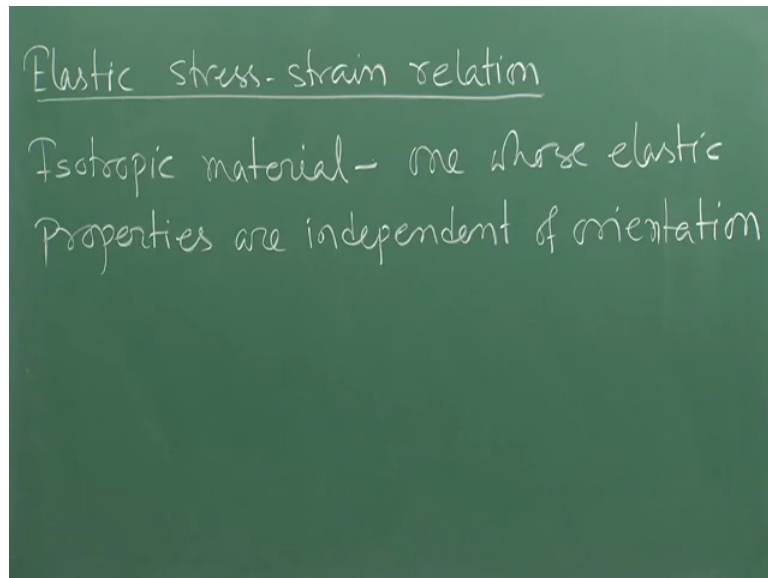 Elastic stress-strain relation
Isotropic material - one whose elastic
properties are independent of orientation